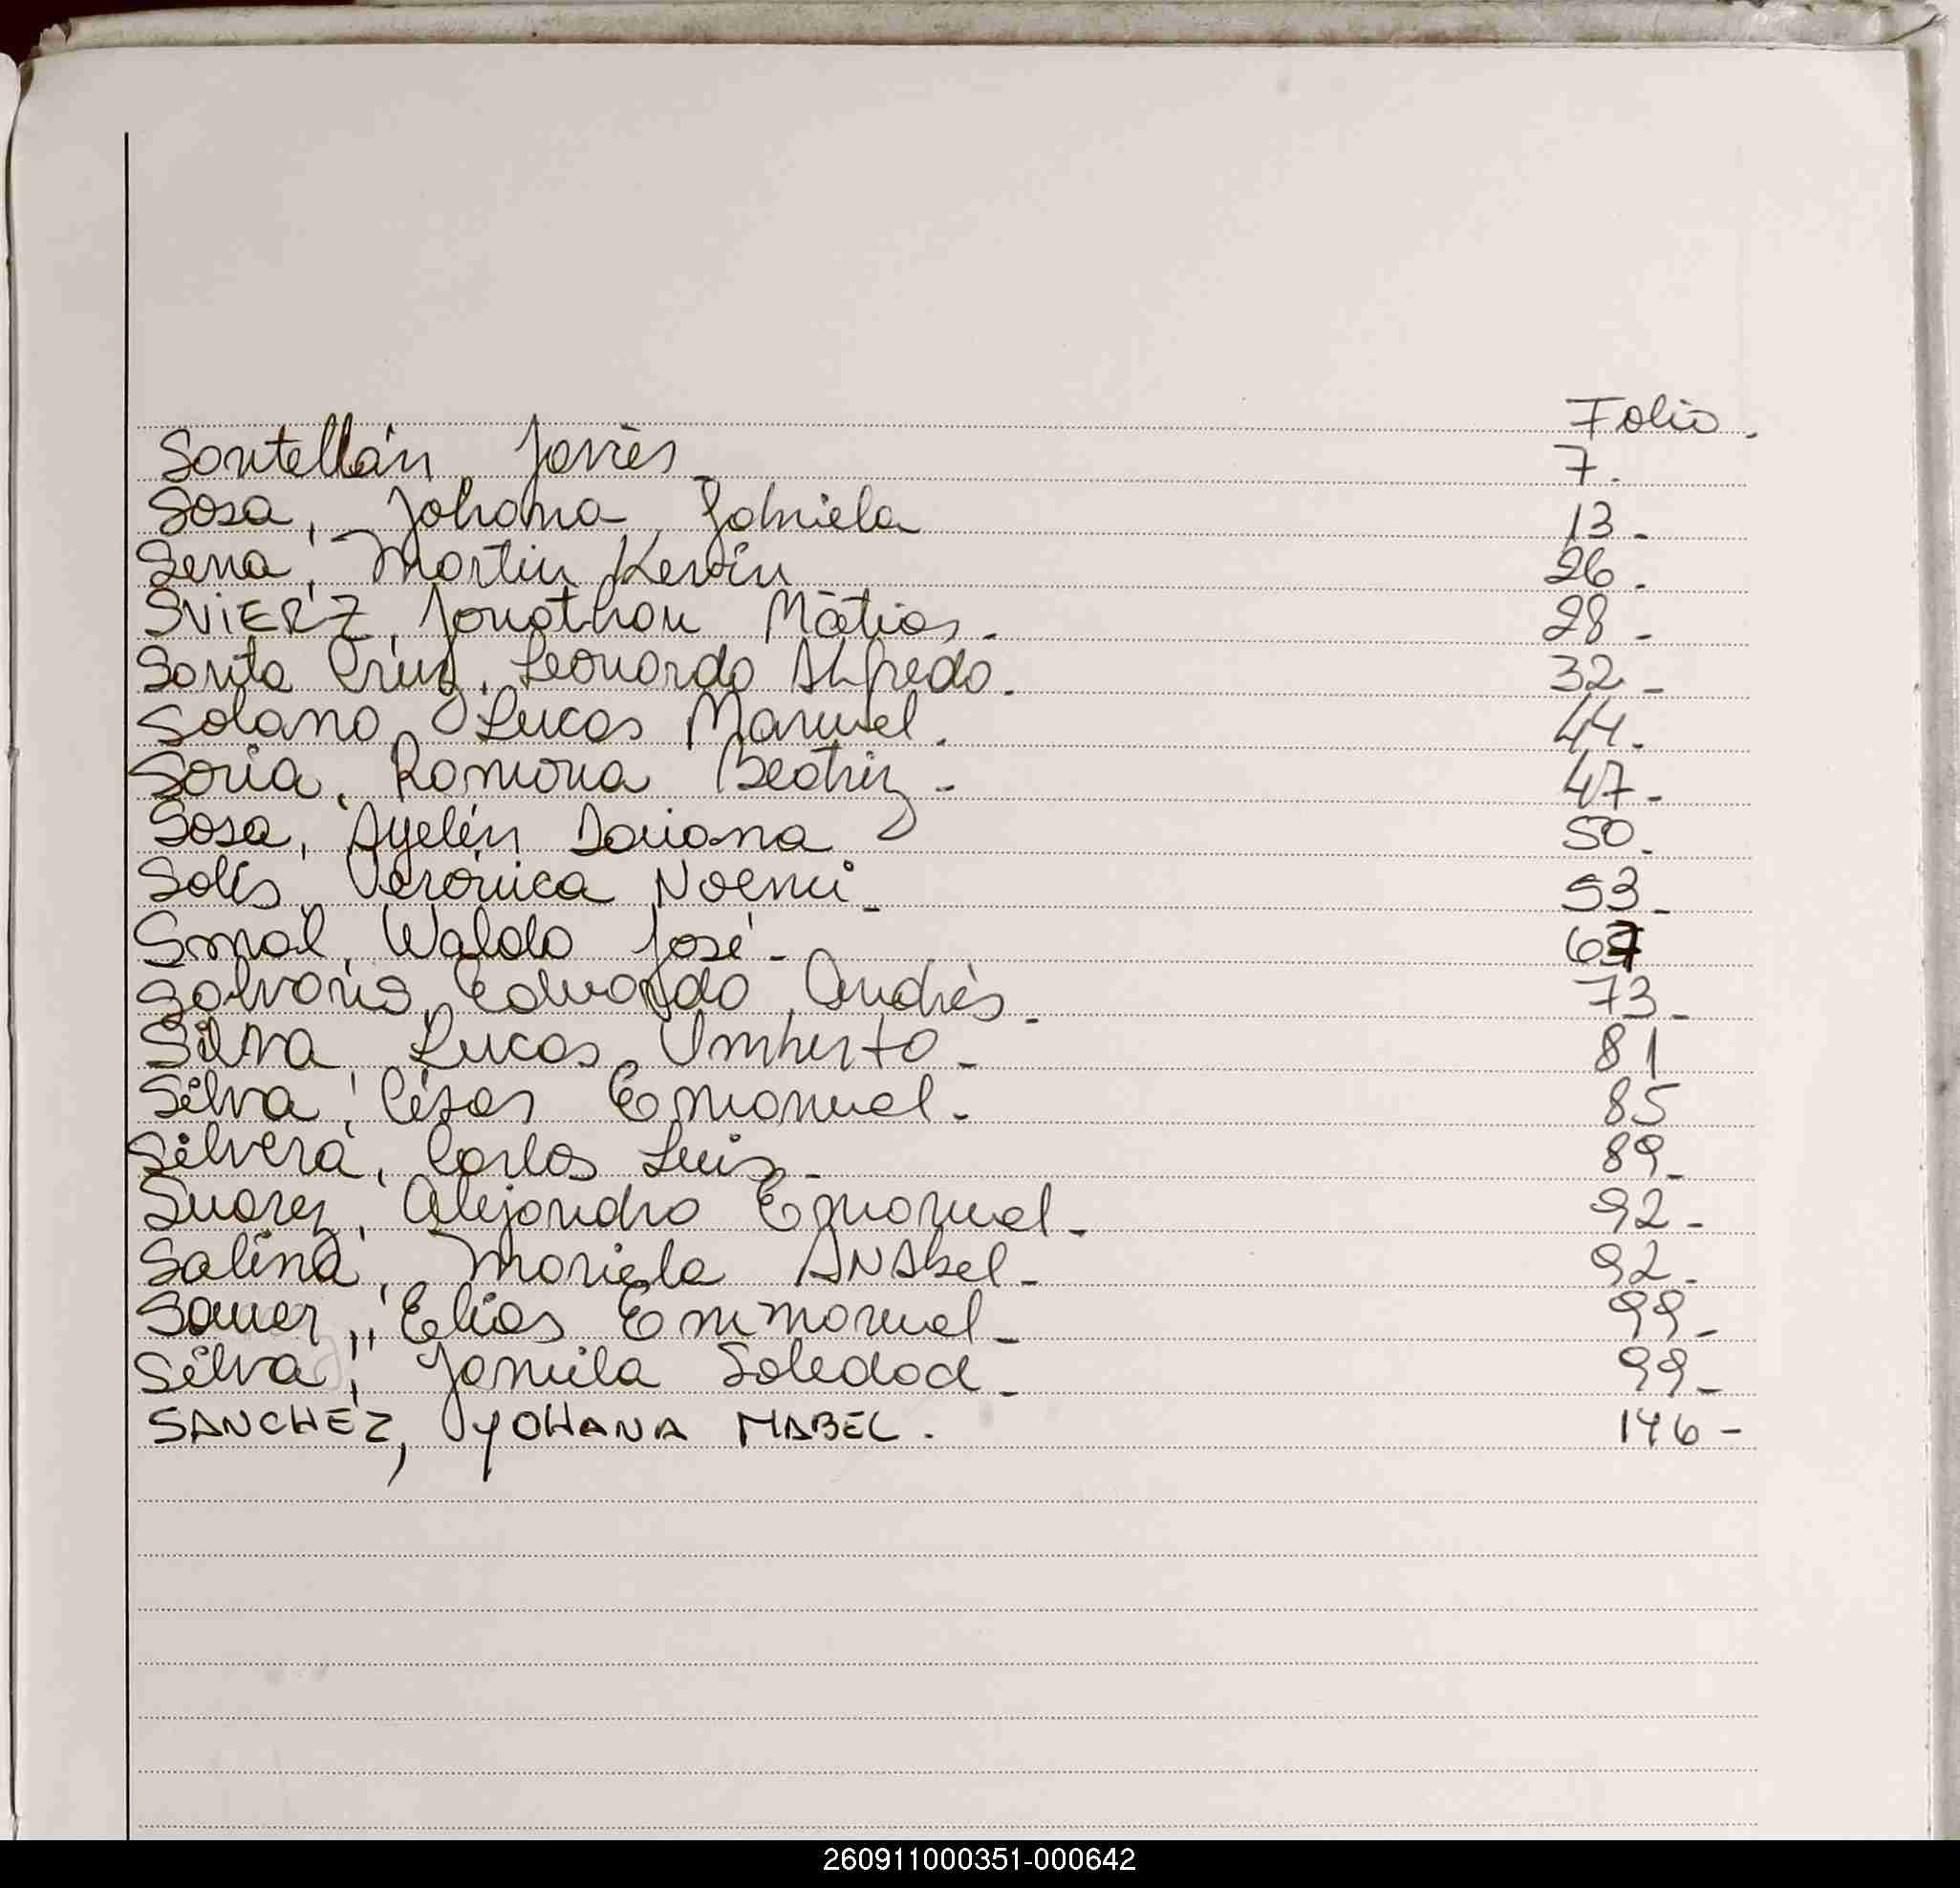 Folio.
Santellán Javier 7.
Sosa, Johana Gabriela 13-
Sena, Martin Kevin 26.
SViERZ, Jonathan Matias. 28-
Santa Cruz, Leonardo Alfredo. 32-
Solano, Lucas Manuel. 44.
Soria, Ramona Beatriz- 47-
Sosa, Ayelén Daiana 50.
Solís, Verónica Noemi- 53-
Smal, Waldo José- 67
Salvaris, Eduardo Andrés- 73-
Silva, Lucas Umberto- 81
Silva, César Emanuel- 85
Silvera, Carlos Luis- 89-
Suarez, Alejandro Emanuel- 92-
Salina, Mariela ANAbel- 92-
Sauer, Elias Emmanuel- 99-
Silva, Jamila Soledad- 99-
SANCHEZ, YOHANA MABEL. 146-
260911000351-000642